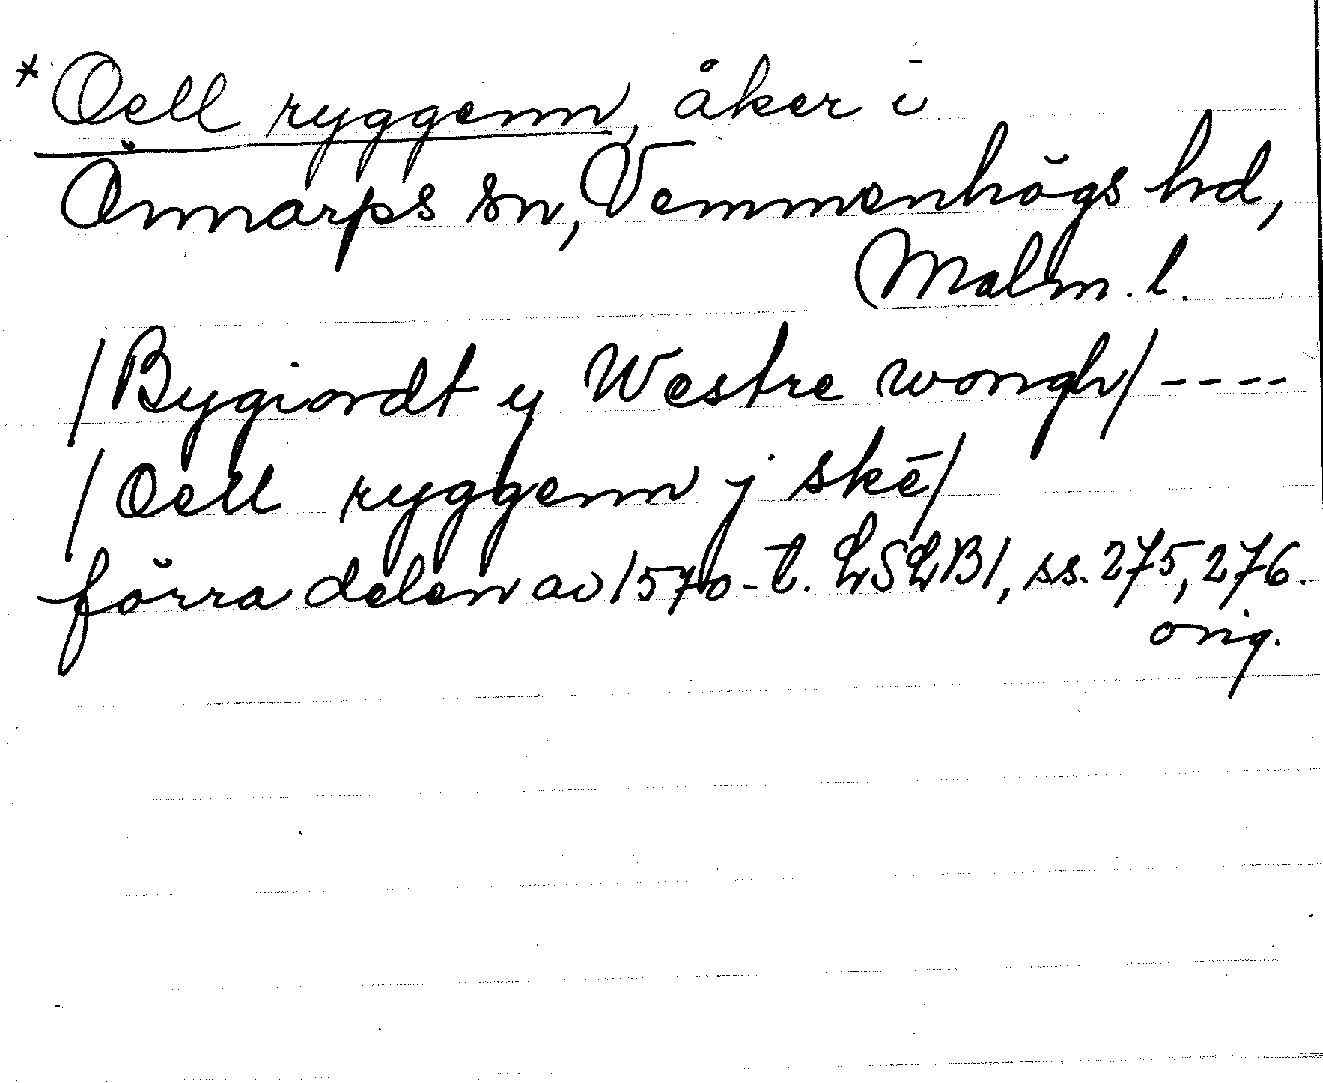 *Oell ryggenn, åker i
Önnarps sn, Vemmenhögs hd,
Malm. l.
/Bygiordt y Westre wongh/ ----
/Oell ryggenn j skē/
förra delen av 1570-t. LSLB1, ss. 275, 276.
orig.